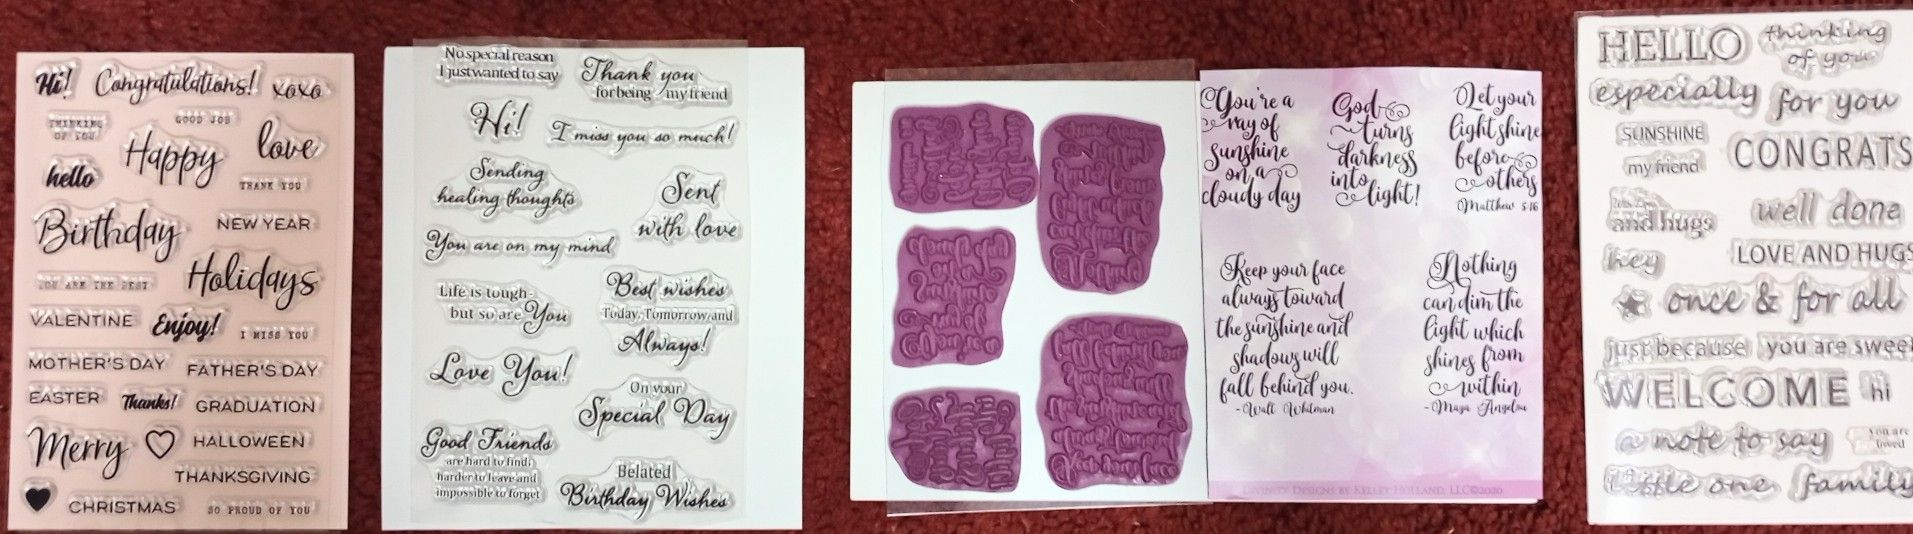 Hi! Congratulations! xoxo
THINKING
OF YOU
GOOD JOB
Happy
love
hello
THANK YOU
Birthday
NEW YEAR
Holidays
YOU ARE THE BEST
VALENTINE
Enjoy!
I MISS YOU
MOTHER'S DAY
FATHER'S DAY
EASTER
Thanks!
GRADUATION
Merry
HALLOWEEN
THANKSGIVING
CHRISTMAS
SO PROUD OF YOU
No special reason
I just wanted to say
Thank you
for being my friend
Hi!
I miss you so much!
Sending
healing thoughts
Sent
with love
You are on my mind
Life is tough-
but so are You
Best wishes
Today, Tomorrow and
Always!
Love You!
On your
Special Day
Good Friends
are hard to find,
harder to leave and
impossible to forget
Belated
Birthday Wishes
You're a
ray of
sunshine
on a
cloudy day
God
turns
darkness
into
light!
Let your
light shine
before
others
Matthew 5:16
Keep your face
always toward
the sunshine and
shadows will
fall behind you.
- Walt Whitman
Nothing
can dim the
light which
shines from
within
- Maya Angelou
DIVINITY DESIGNS BY KELLEY HOLLAND, LLC©2020
HELLO
thinking
of you
especially
for you
SUNSHINE
my friend
CONGRATS
and hugs
well done
hey
LOVE AND HUGS
once & for all
just because
you are sweet
WELCOME
hi
a note to say
you are
loved
little one
family